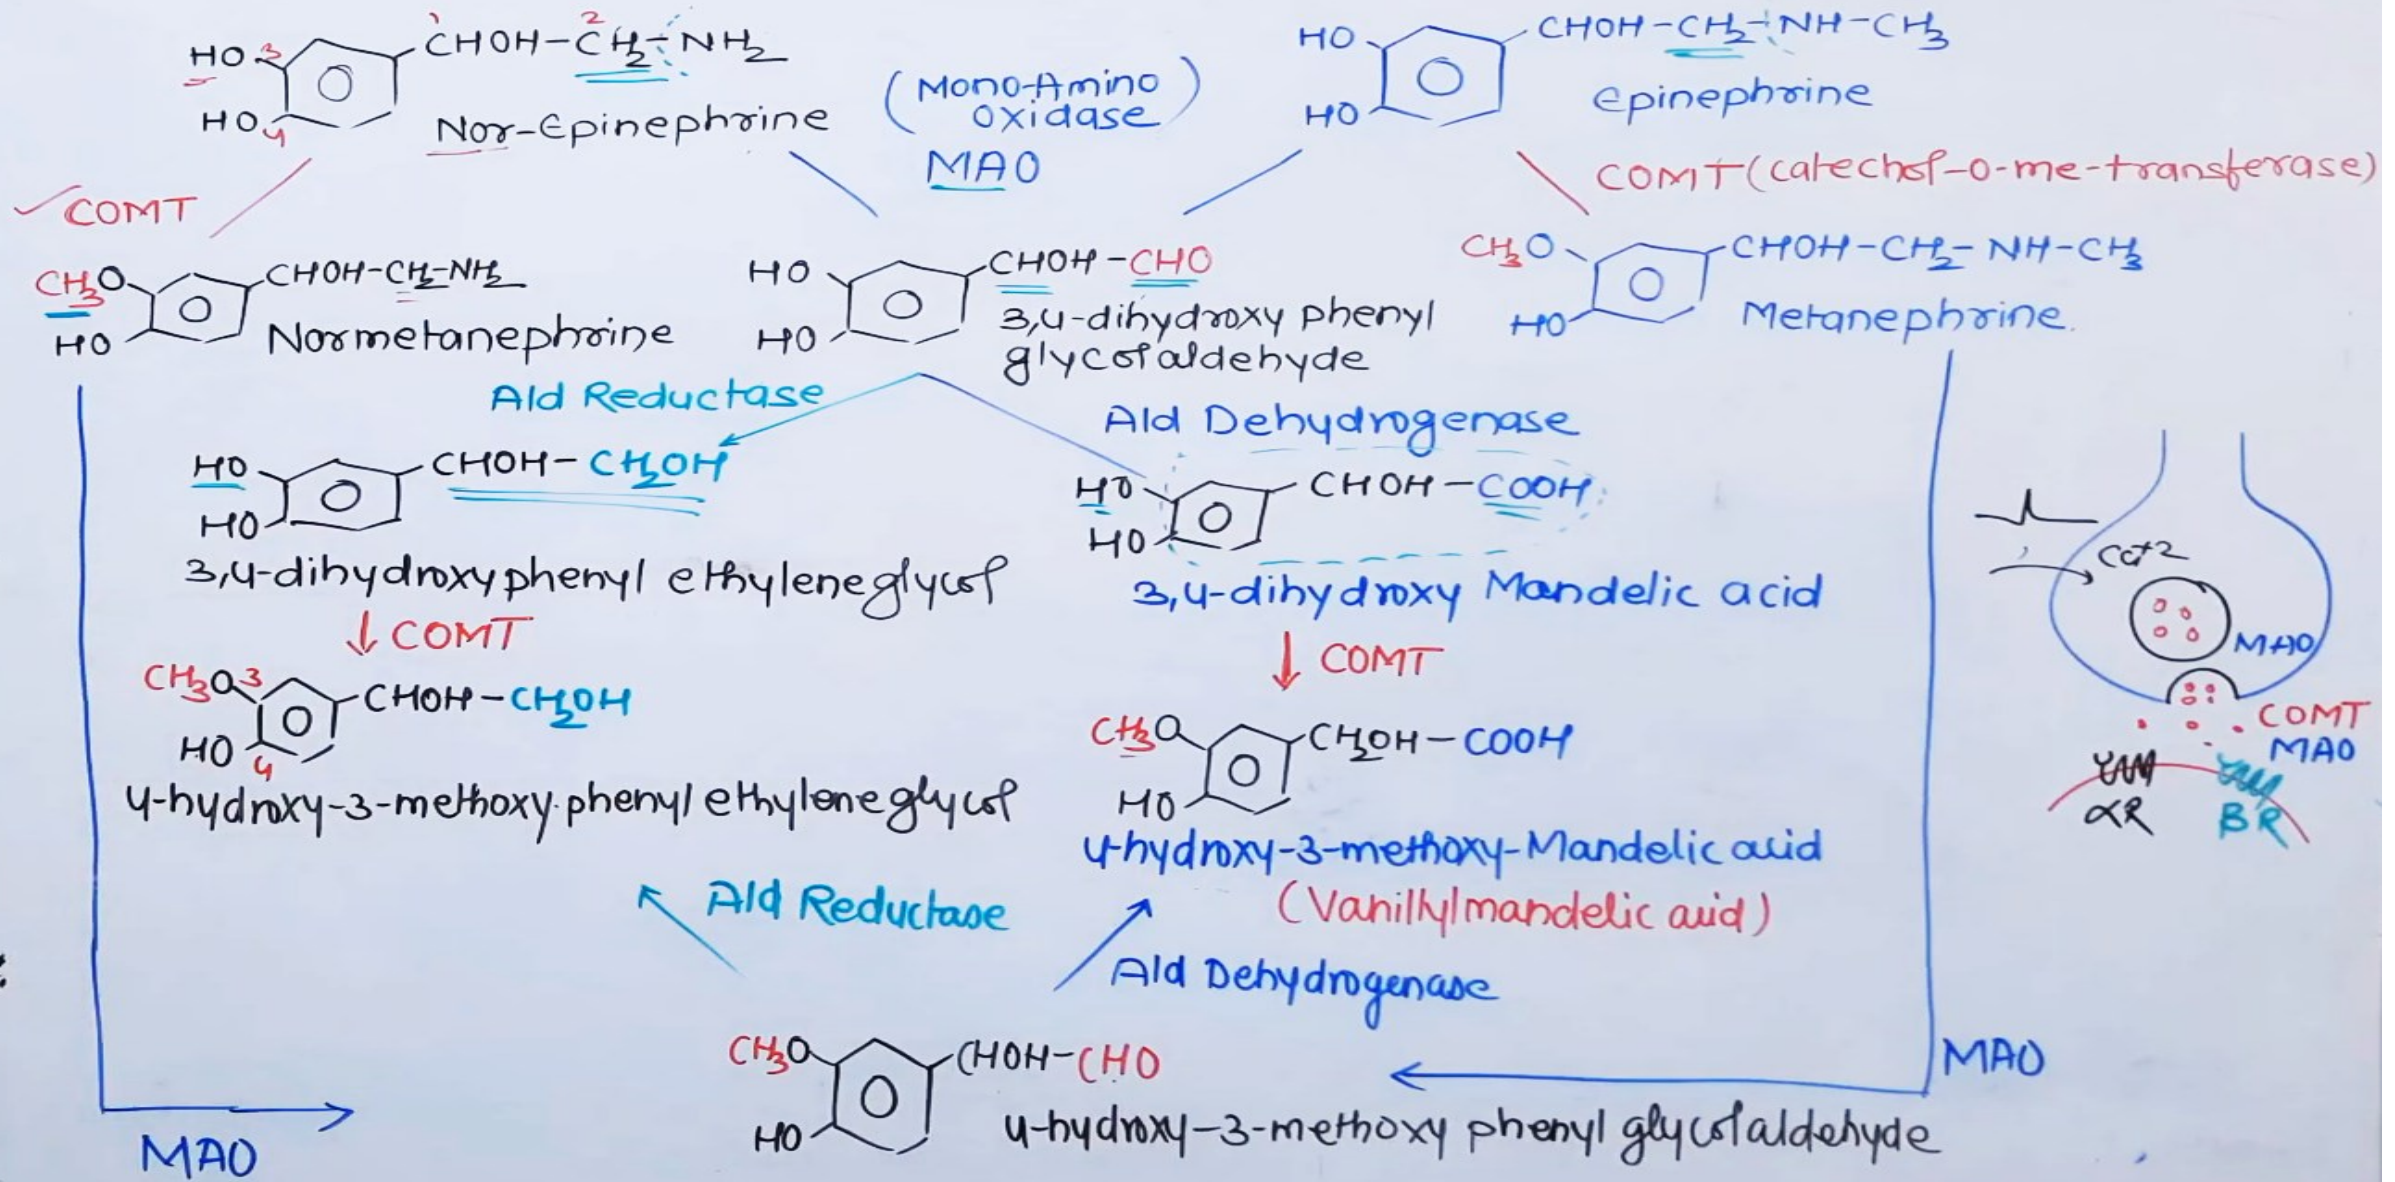 HO 3
HO 4
1 2
CHOH-CH2-NH2
Nor-Epinephrine
(Mono-Amino
Oxidase)
MAO
HO
HO
CHOH-CH2-NH-CH3
Epinephrine
COMT
COMT (catechol-o-me-transferase)
CH3O
HO
CHOH-CH2-NH2
Normetanephrine
HO
HO
CHOH-CHO
3,4-dihydroxy phenyl
glycolaldehyde
CH3O
HO
CHOH-CH2-NH-CH3
Metanephrine.
Ald Reductase
Ald Dehydrogenase
HO
HO
CHOH-CH2OH
3,4-dihydroxyphenyl ethyleneglycol
HO
HO
CHOH-COOH
3,4-dihydroxy Mandelic acid
↓ COMT
↓ COMT
CH3O 3
HO 4
CHOH-CH2OH
4-hydroxy-3-methoxy phenyl ethyleneglycol
CH3O
HO
CH2OH-COOH
4-hydroxy-3-methoxy-Mandelic acid
(Vanillylmandelic acid)
Ald Reductase
Ald Dehydrogenase
CH3O
HO
CHOH-CHO
4-hydroxy-3-methoxy phenyl glycolaldehyde
MAO
MAO
Ca+2
MAO
COMT
MAO
αR
BR